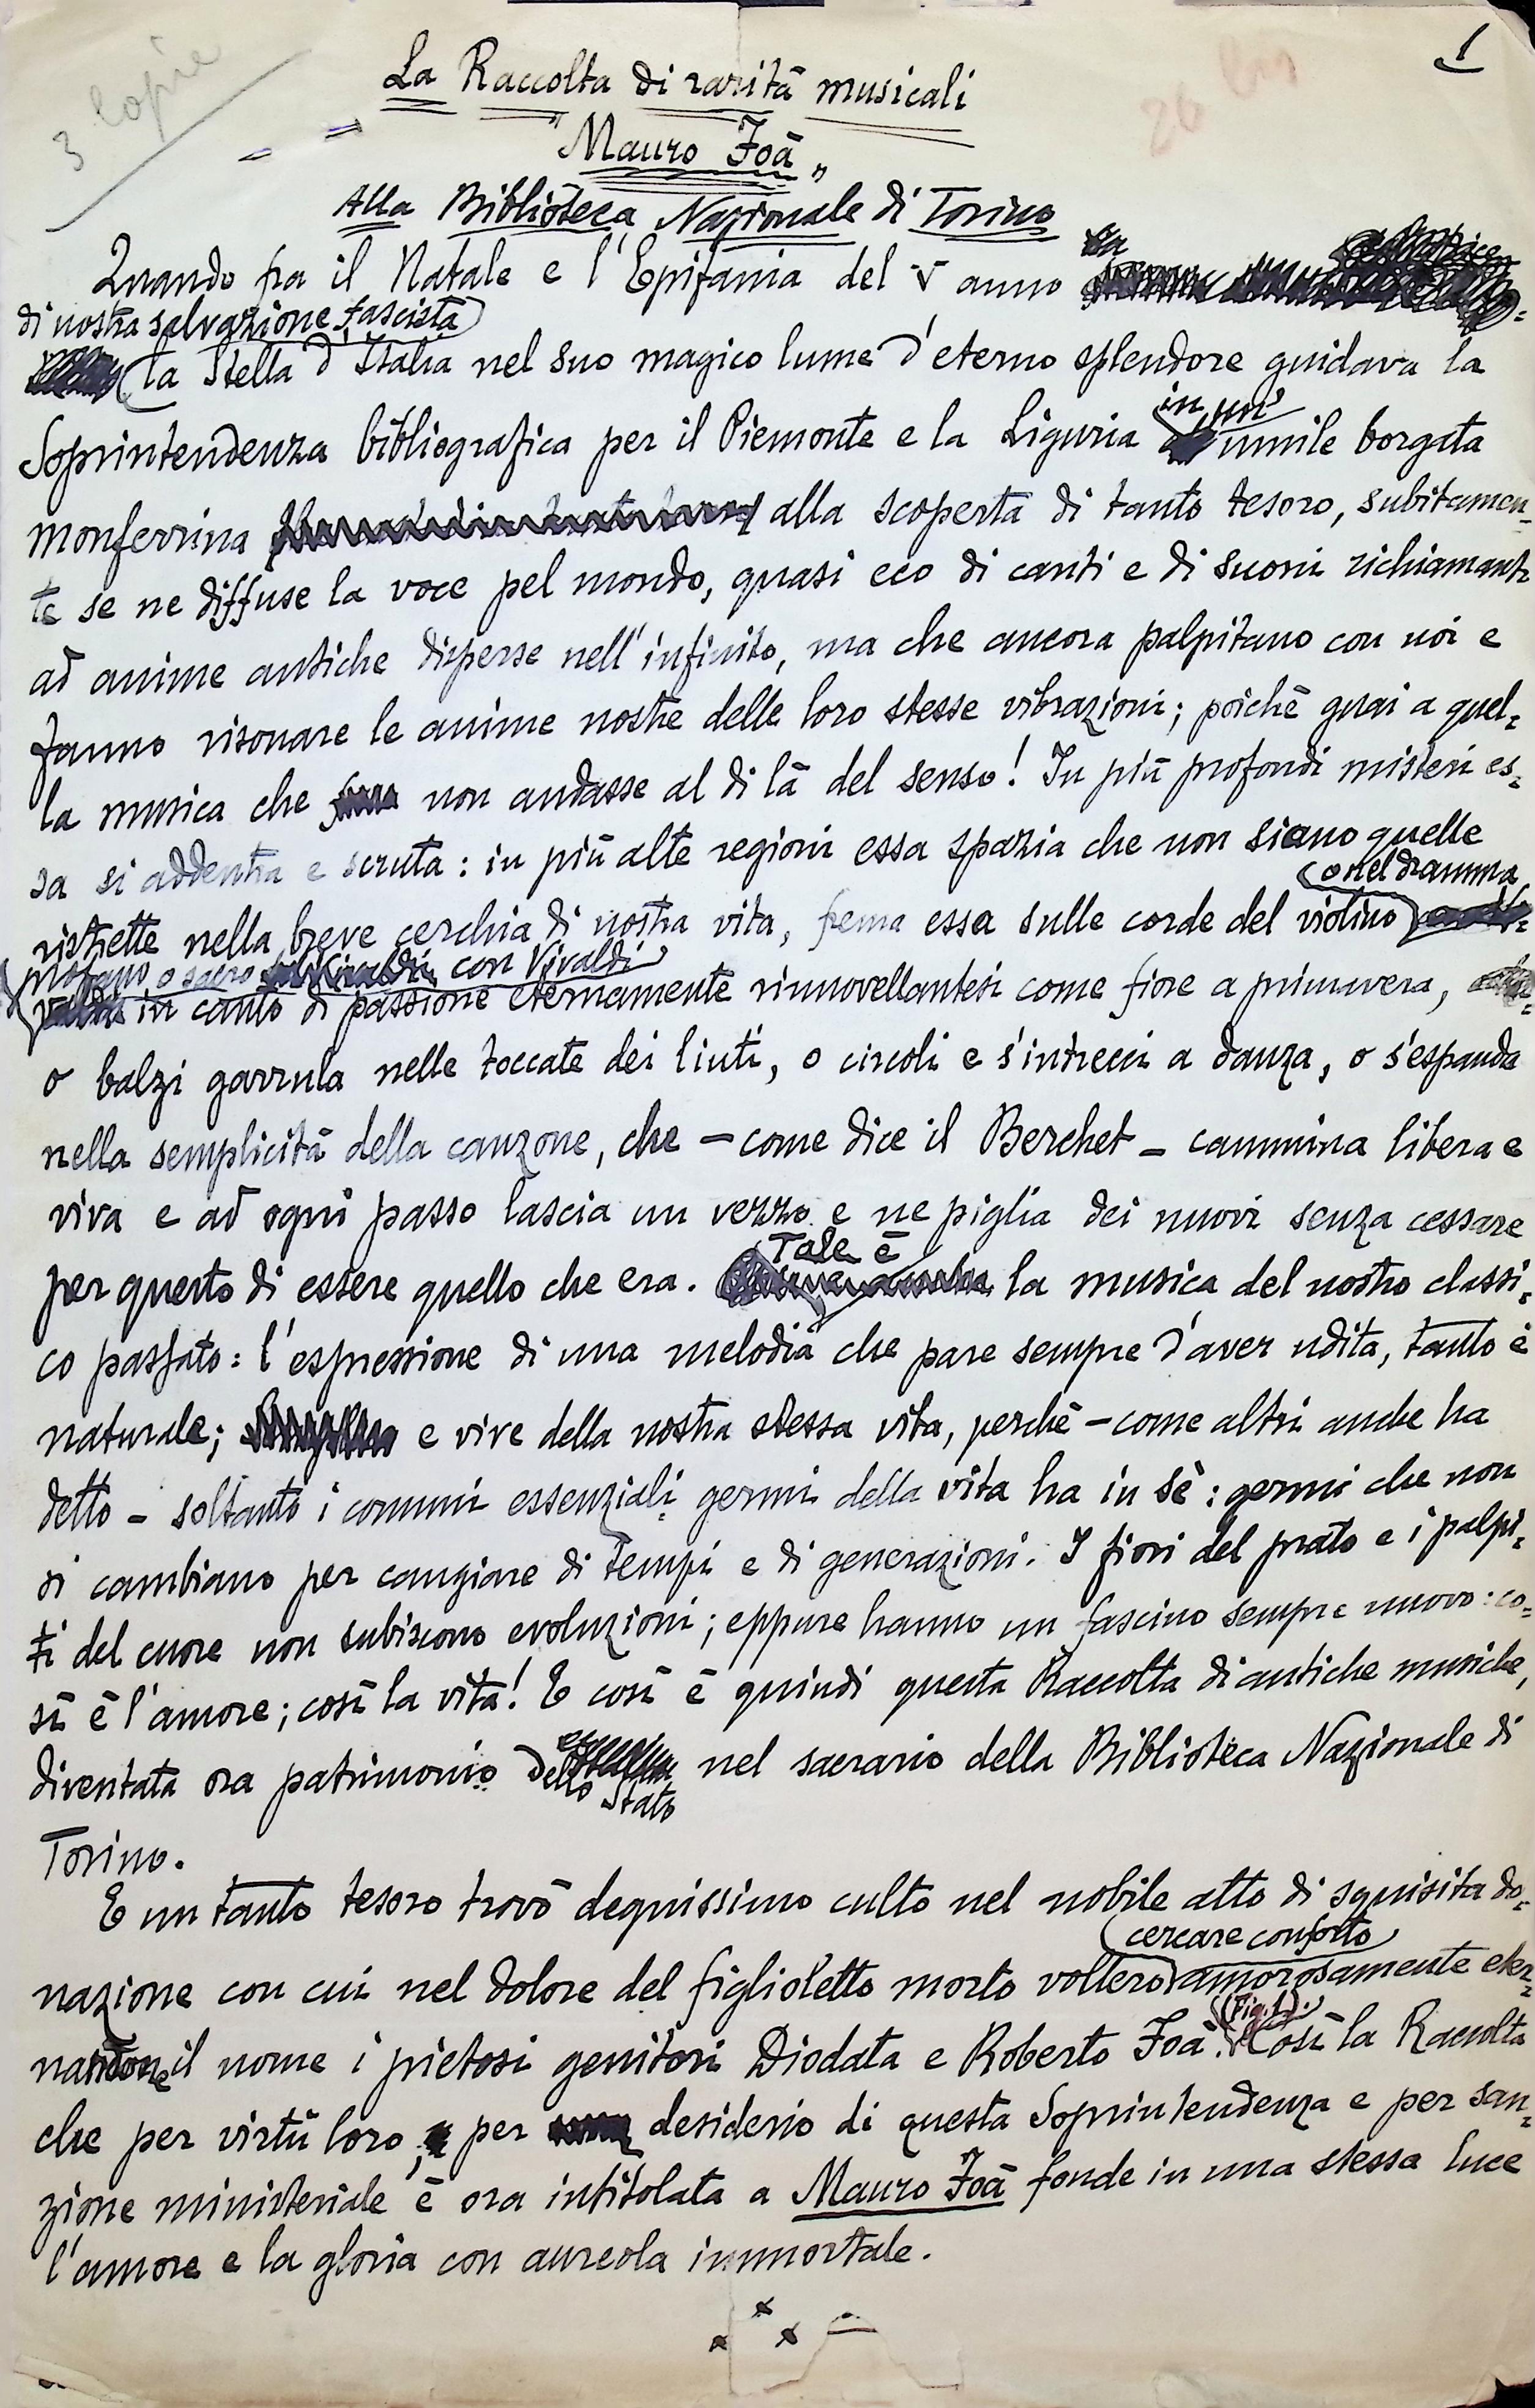 3 copie
1
La Raccolta di rarità musicali
"Mauro Foà"
Alla Biblioteca Nazionale di Torino
Quando fra il Natale e l'Epifania del V anno
di nostra salvazione fascista
la Stella d'Italia nel suo magico lume d'eterno splendore guidava la
in un'
Soprintendenza bibliografica per il Piemonte e la Liguria umile borgata
monferrina alla scoperta di tanto tesoro, subitamen-
te se ne diffuse la voce pel mondo, quasi eco di canti e di suoni richiamanti
ad anime antiche disperse nell'infinito, ma che ancora palpitano con noi e
fanno risonare le anime nostre delle loro stesse vibrazioni; poichè guai a quel=
la musica che non andasse al di là del senso! In più profondi misteri es=
sa si addentra e scruta: in più alte regioni essa spazia che non siano quelle
o nel dramma
ristrette nella breve cerchia di nostra vita, frema essa sulle corde del violino
profano o sacro con Vivaldi
in canto di passione eternamente rinnovellantesi come fiore a primavera,
o balzi garrula nelle toccate dei liuti, o circoli e s'intrecci a danza, o s'espanda
nella semplicità della canzone, che – come dice il Berchet – cammina libera e
viva e ad ogni passo lascia un vezzo e ne piglia dei nuovi senza cessare
Tale è
per questo di essere quello che era. la musica del nostro classi=
co passato: l'espressione di una melodia che pare sempre d'aver udita, tanto è
naturale; e vive della nostra stessa vita, perchè – come altri anche ha
detto – soltanto i comuni essenziali germi della vita ha in sè: germi che non
si cambiano per cangiare di tempi e di generazioni. I fiori del prato e i palpi=
ti del cuore non subiscono evoluzioni; eppure hanno un fascino sempre nuovo: co=
sì è l'amore; così la vita! E così è quindi questa Raccolta di antiche musiche,
diventata ora patrimonio dello Stato nel sacrario della Biblioteca Nazionale di
Torino.
E un tanto tesoro trovò degnissimo culto nel nobile atto di squisita do=
cercare conforto
nazione con cui nel dolore del figlioletto morto vollero amorosamente eter=
(Fig. 1).
nandone il nome i pietosi genitori Diodata e Roberto Foà. Così la Raccolta
che per virtù loro, per desiderio di questa Soprintendenza e per san=
zione ministeriale è ora intitolata a Mauro Foà fonde in una stessa luce
l'amore e la gloria con aureola immortale.